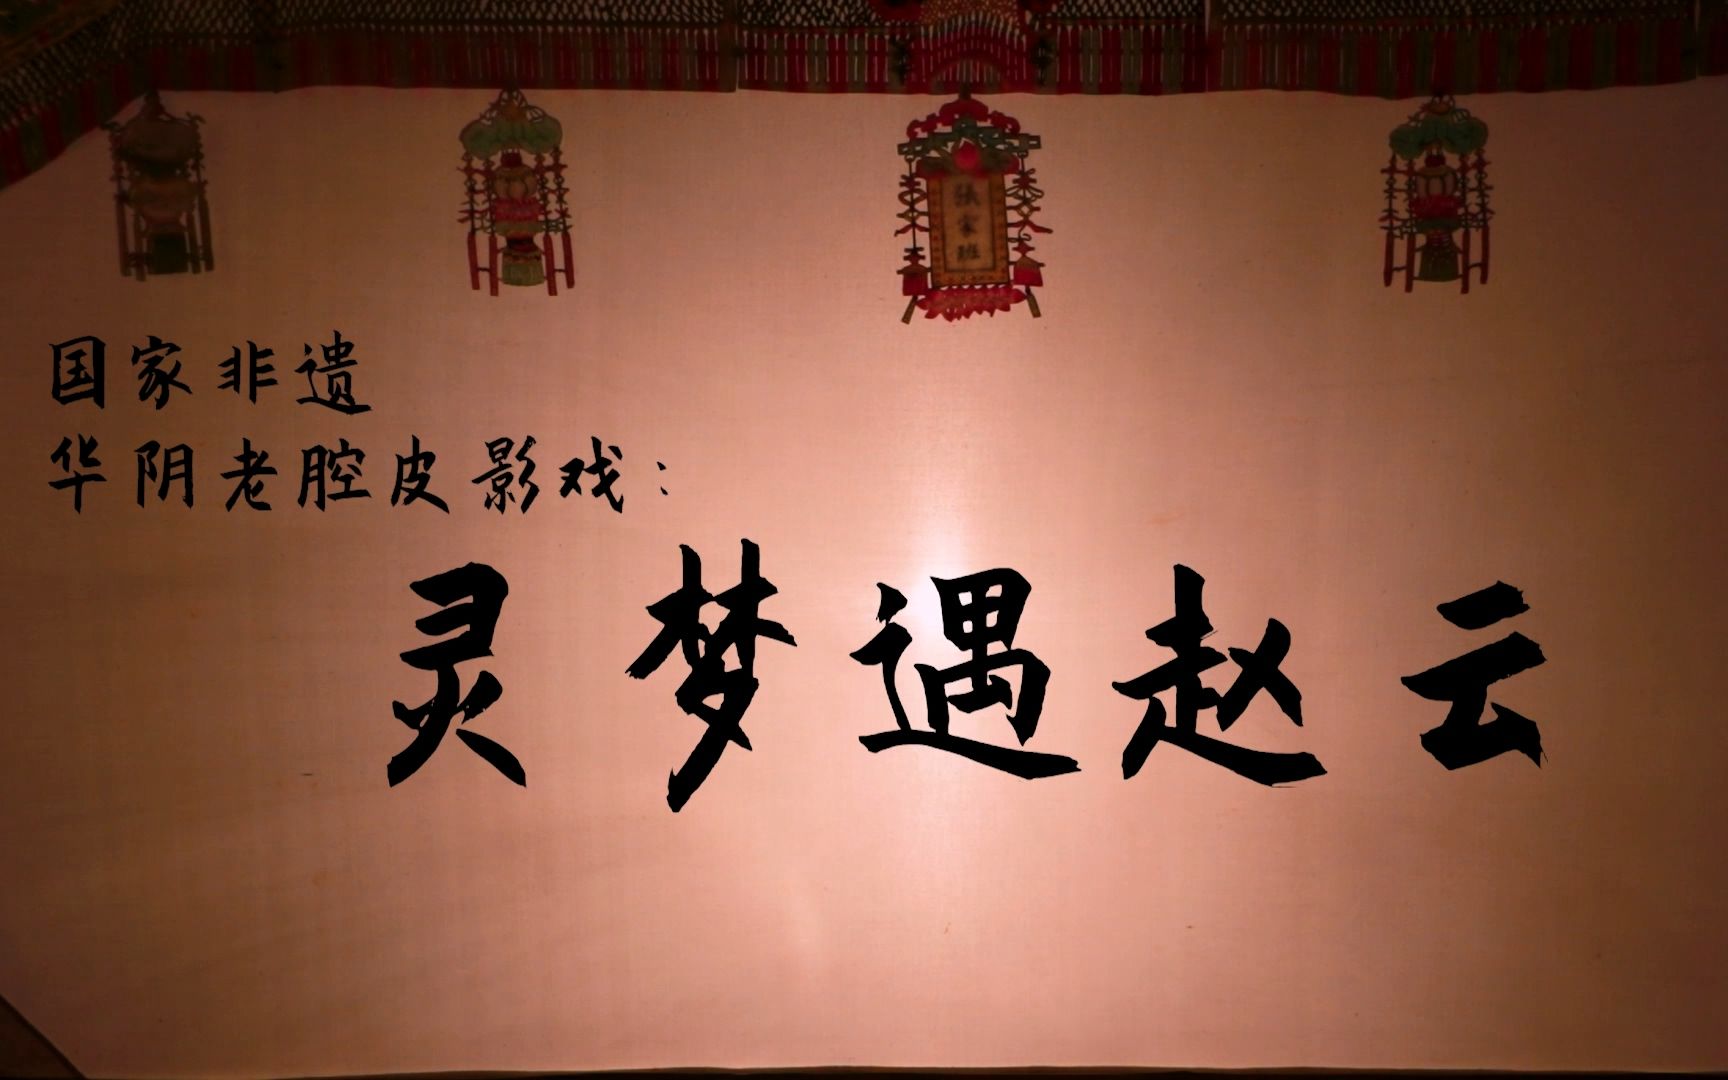 張家班
国家非遗
华阴老腔皮影戏：
灵梦遇赵云